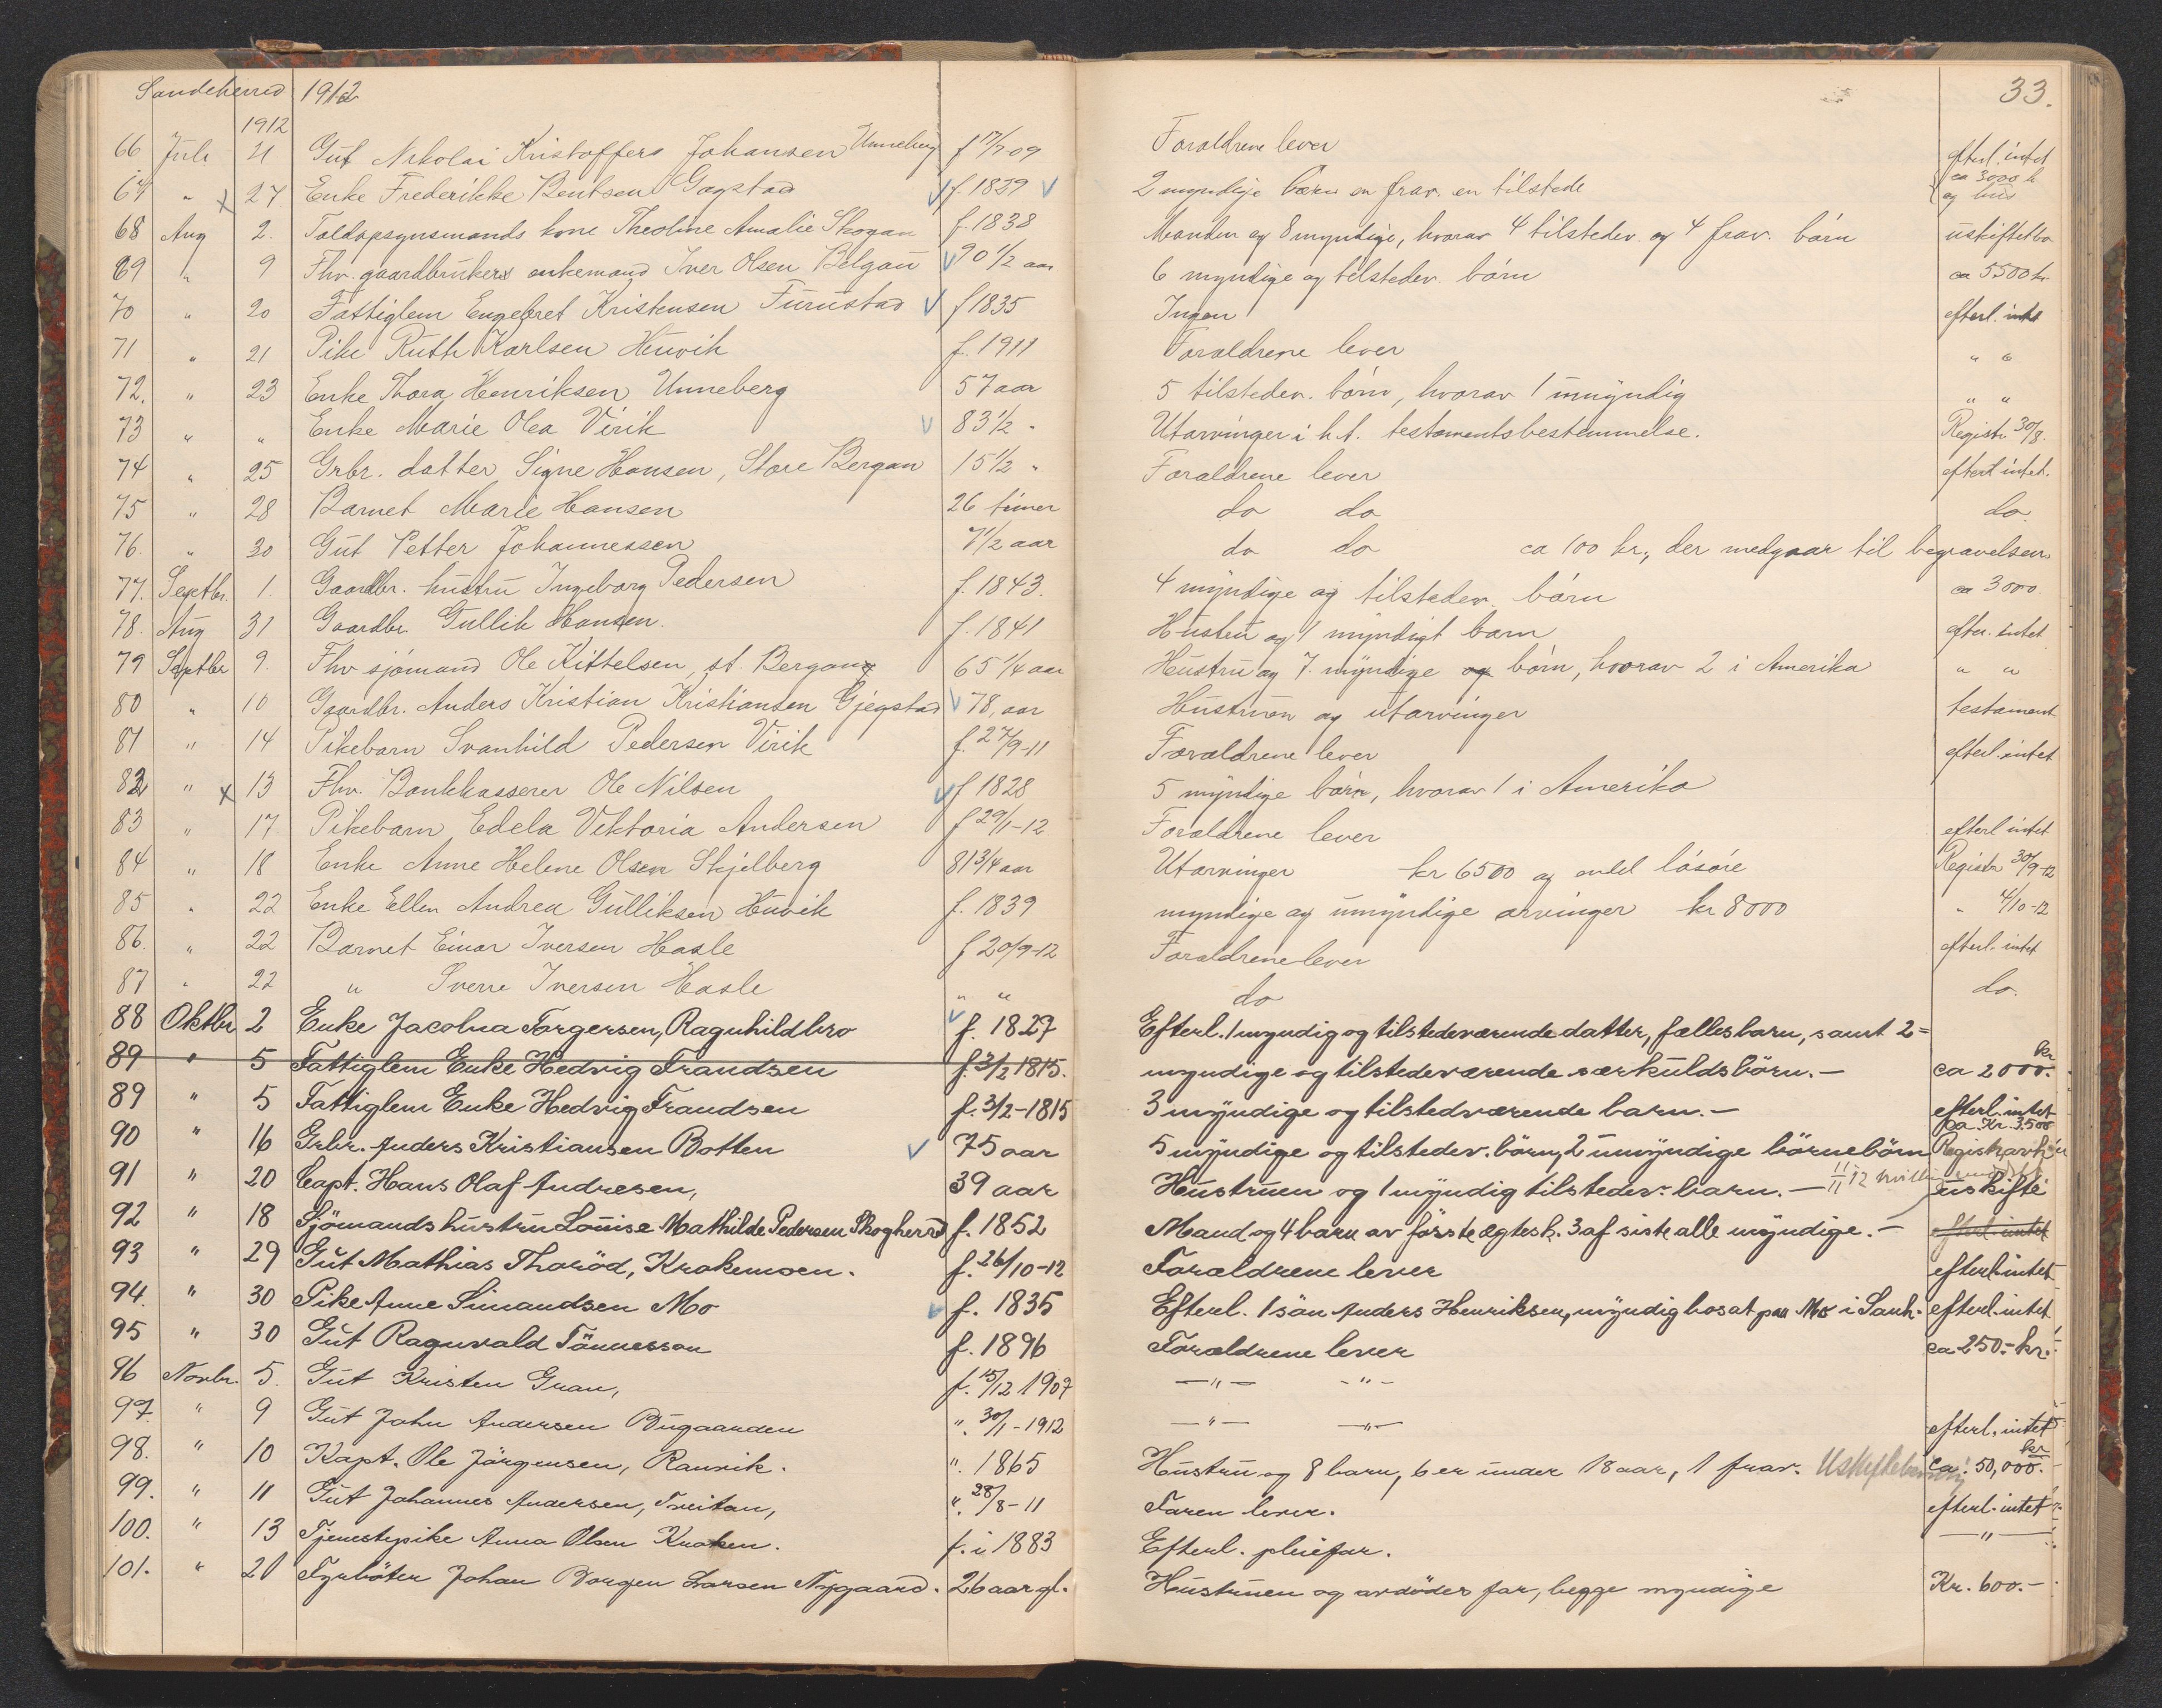 Sandeherred 1912 33.
1912
66 Juli 21 Gut Nikolai Kristoffers Johansen Unneberg f 17/7 09 Forældrene lever efterl. intet
67 " x 27. Enke Frederikke Bentsen Gogstad f. 1829 2 myndige børn en frav. en tilstede ca 3000 k og hus
68 Aug 2. Toldopsynsmands kone Theoline Amalie Skogan f. 1838 Manden og 8 myndige, hvorav 4 tilstedev. og 4 frav. börn uskiftetbo
69 " 9 Fhv. gaardbruker enkemand Iver Olsen Belgau 90 1/2 aar 6 myndige og tilstedev. börn ca 5500 kr
70 " 20 Fattiglem Engebret Kristensen Furustad f 1835 Ingen efterl. intet
71 " 21 Pike Ruth Karlsen Huvik f. 1911 Forældrene lever " "
72. " 23 Enke Thora Henriksen Unneberg 57 aar 5 tilstedev. börn, hvorav 1 umyndig " "
73 " " Enke Marie Olea Virik 83 1/2 " Utarvinger i h.t. testamentsbestemmelse. Registr. 30/8.
74 " 25 Grbr. datter Signe Hansen, Store Bergan 15 1/2 " Forældrene lever efterl intet.
75 " 28 Barnet Marie Hansen 26 timer do do do.
76. " 30 Gut Petter Johannessen 7 1/2 aar do do ca 100 kr., der medgaar til begravelsen
77. Septbr. 1. Gaardbr. hustru Ingeborg Pedersen f. 1843. 4 myndige og tilstedev. börn ca 3000.
78. Aug 31 Gaardbr. Gullik Hansen. f. 1841 Hustru og 1 myndigt barn efter. intet
79 Septbr 9. Fhv sjömand Ole Kittelsen, st. Bergan 65 1/4 aar Hustru og 7. myndige og börn, hvorav 2 i Amerika " "
80 " 10 Gaardbr. Anders Kristian Kristiansen Gjegstad 78, aar Hustruen og utarvinger testament
81 " 14 Pikebarn Svanhild Pedersen Virik f. 27/9-11 Forældrene lever efterl. intet
82 " x 13 Fhv. Bankkasserer Ole Nilsen f 1828 5 myndige börn, hvorav 1 i Amerika
83 " 17 Pikebarn Edela Viktoria Andersen f 29/1-12 Forældrene lever efterl intet
84 " 18 Enke Anne Helene Olsen Skjelberg 81 3/4 aar Utarvinger kr 6500 og endel lösöre Registr 30/9-12
85 " 22 Enke Ellen Andrea Gulliksen Huvik f. 1839 myndige og umyndige arvinger kr 8000 " 4/10-12
86. " 22 Barnet Einar Iversen Hasle f 20/9-12 Forældrene lever efterl. intet
87 " 22 " Sverre Iversen Hasle " " do do.
88 Oktbr 2 Enke Jacobia Torgersen, Ragnhildbro f. 1827 Efterl. 1 myndig og tilstedeværende datter, fællesbarn, samt 2=
89 " 5 Fattiglem Enke Hedvig Frandsen f. 3/2 1815. myndige og tilstedeværende særkuldsbörn.- ca 2000. kr
89 " 5 Fattiglem Enke Hedvig Frandsen f. 3/2-1815 3 myndige og tilstedværende barn.- efterl. intet
90 " 16 Grbr. Anders Kristiansen Botten 75 aar 5 myndige og tilstedev. börn, 2 umyndige börnebörn ca. Kr. 3500 Registravh
91 " 20 Capt. Hans Olaf Andresen, 39 aar Hustruen og 1 myndig tilstedev. barn. - uskifte
92 " 18 Sjömandshustru Louise Mathilde Pedersen Skogherrd f. 1852 Mand og 4 barn av förste ægtesk. 3 af siste alle myndige. - efterl. intet
93 " 29 Gut Mathias Thoröd, Krokemoen. f. 26/10-12 Forældrene lever efterl. intet
94. " 30 Pike Anne Simandsen Mo f. 1835 Efterl. 1 sön Anders Henriksen, myndig bosat paa Mo i Sanh. efterl. intet
95 " 30 Gut Ragnvald Tönnesson f. 1896 Forældrene lever ca 250.- kr.
96 Novbr. 5. Gut Kristen Gran, f. 15/12 1907 -"- -"-
97. " 9 Gut John Andersen Bugaarden ". 30/1-1912 -"- -"- efterl. intet
98. " 10 Kapt. Ole Jörgensen, Ranvik. ". 1865 Hustru og 8 barn, 6 er under 18 aar, 1 frav. ca. 50,000. kr
99. " 11 Gut Johannes Andersen, Treitan, ". 28/8-11 Faren lever. efterl. intet
100. " 13 Tjenestepike Anna Olsen Kroken. f. i 1883 Efterl. pleiefar. -"-
101. " 21 Fyrböter Johan Borgen Larsen Nygaard. 26 aar gl. Hustruen og avdödes far, begge myndige Kr. 600.-